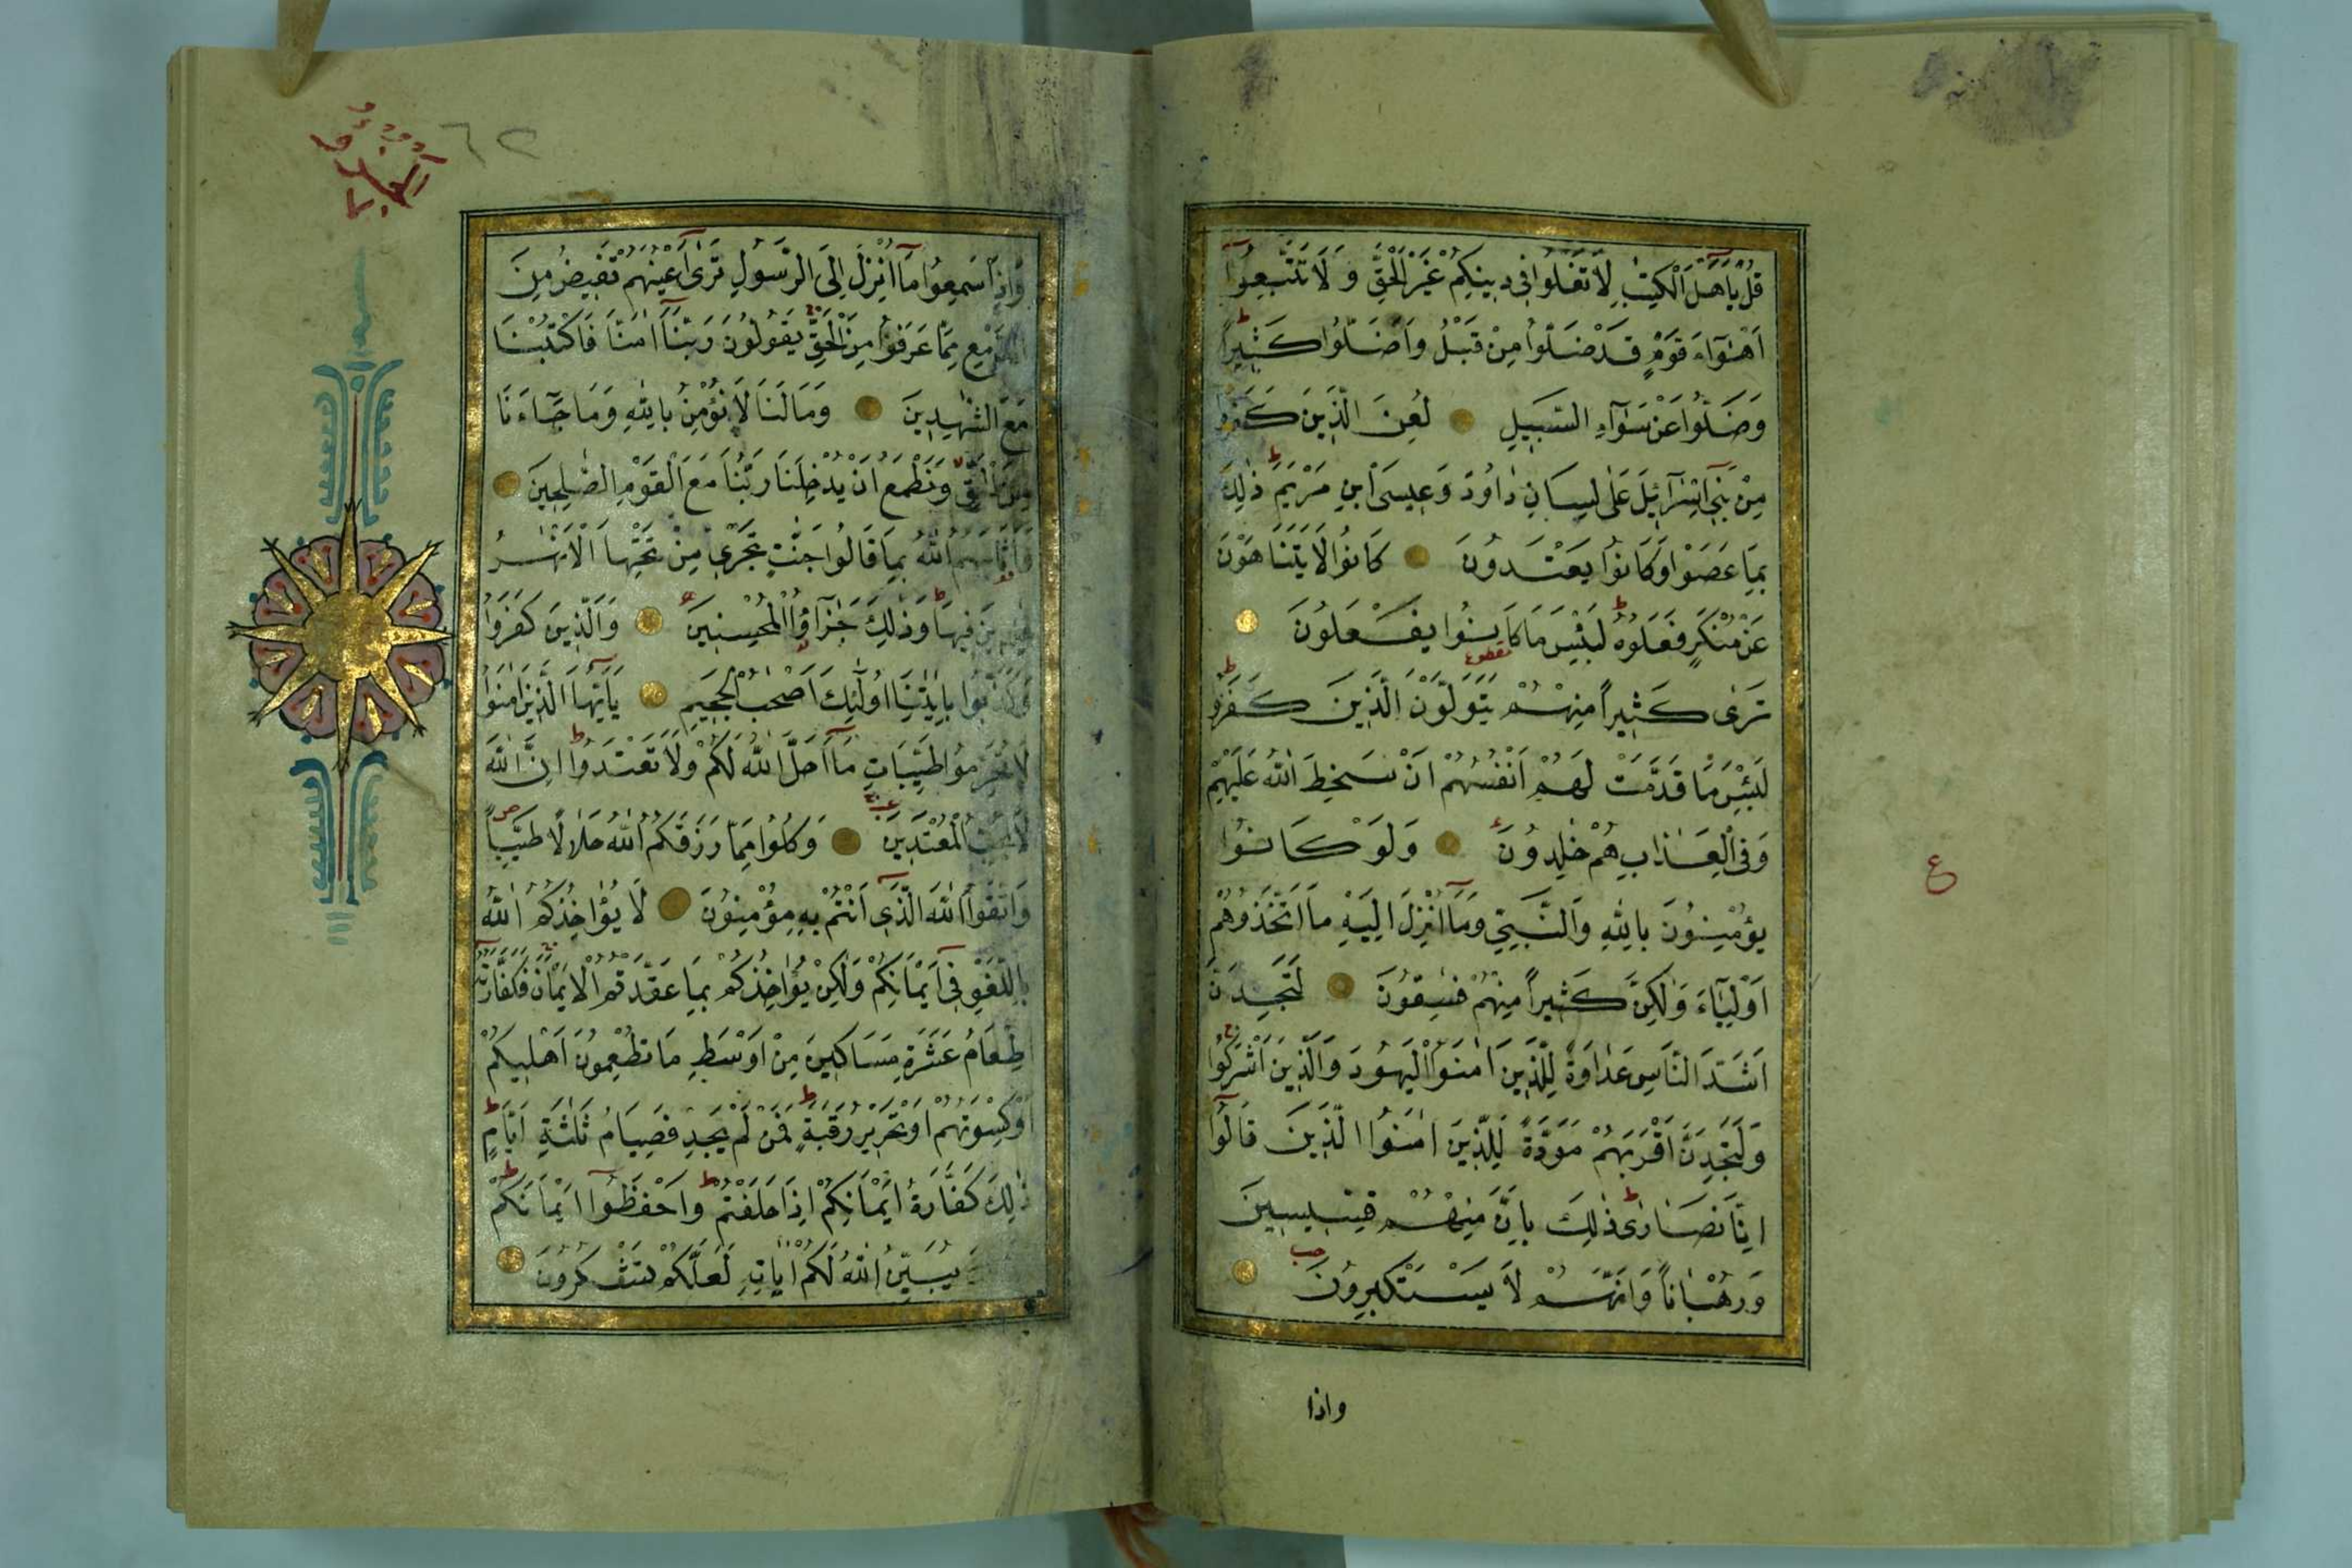 قُلْ يَٓا اَهْلَ الْكِتٰبِ لَا تَغْلُوا فٖى دٖينِكُمْ غَيْرَ الْحَقِّ وَلَا تَتَّبِعُٓوا
اَهْوَٓاءَ قَوْمٍ قَدْ ضَلُّوا مِنْ قَبْلُ وَاَضَلُّوا كَثٖيراً
وَضَلُّوا عَنْ سَوَٓاءِ السَّبٖيلِ لُعِنَ الَّذٖينَ كَفَرُوا
مِنْ بَنٖٓى اِسْرَٓائٖلَ عَلٰى لِسَانِ دَاوُدَ وَعٖيسَى ابْنِ مَرْيَمَ ذٰلِكَ
بِمَا عَصَوْا وَكَانُوا يَعْتَدُونَ كَانُوا لَا يَتَنَاهَوْنَ
عَنْ مُنْكَرٍ فَعَلُوهُ لَبِئْسَ مَا كَانُوا يَفْعَلُونَ
تَرٰى كَثٖيراً مِنْهُمْ يَتَوَلَّوْنَ الَّذٖينَ كَفَرُوا
لَبِئْسَ مَا قَدَّمَتْ لَهُمْ اَنْفُسُهُمْ اَنْ سَخِطَ اللّٰهُ عَلَيْهِمْ
وَفِى الْعَذَابِ هُمْ خٰلِدُونَ وَلَوْ كَانُوا
يُؤْمِنُونَ بِاللّٰهِ وَالنَّبِىِّ وَمَٓا اُنْزِلَ اِلَيْهِ مَا اتَّخَذُوهُمْ
اَوْلِيَٓاءَ وَلٰكِنَّ كَثٖيراً مِنْهُمْ فٰسِقُونَ لَتَجِدَنَّ
اَشَدَّ النَّاسِ عَدَاوَةً لِلَّذٖينَ اٰمَنُوا الْيَهُودَ وَالَّذٖينَ اَشْرَكُوا
وَلَتَجِدَنَّ اَقْرَبَهُمْ مَوَدَّةً لِلَّذٖينَ اٰمَنُوا الَّذٖينَ قَالُٓوا
اِنَّا نَصَارٰى ذٰلِكَ بِاَنَّ مِنْهُمْ قِسّٖيسٖينَ
وَرُهْبَاناً وَاَنَّهُمْ لَا يَسْتَكْبِرُونَ
واذا
ع
الجزؤ
٦٢
وَاِذَا سَمِعُوا مَٓا اُنْزِلَ اِلَى الرَّسُولِ تَرٰٓى اَعْيُنَهُمْ تَفٖيضُ مِنَ
الدَّمْعِ مِمَّا عَرَفُوا مِنَ الْحَقِّ يَقُولُونَ رَبَّنَٓا اٰمَنَّا فَاكْتُبْنَا
مَعَ الشّٰهِدٖينَ وَمَا لَنَا لَا نُؤْمِنُ بِاللّٰهِ وَمَا جَٓاءَنَا
مِنَ الْحَقِّ وَنَطْمَعُ اَنْ يُدْخِلَنَا رَبُّنَا مَعَ الْقَوْمِ الصّٰلِحٖينَ
فَاَثَابَهُمُ اللّٰهُ بِمَا قَالُوا جَنّٰتٍ تَجْرٖى مِنْ تَحْتِهَا الْاَنْهٰرُ
خٰلِدٖينَ فٖيهَا وَذٰلِكَ جَزَٓاؤُا الْمُحْسِنٖينَ وَالَّذٖينَ كَفَرُوا
وَكَذَّبُوا بِاٰيٰتِنَٓا اُولٰٓئِكَ اَصْحٰبُ الْجَحٖيمِ يَٓا اَيُّهَا الَّذٖينَ اٰمَنُوا
لَا تُحَرِّمُوا طَيِّبَاتِ مَٓا اَحَلَّ اللّٰهُ لَكُمْ وَلَا تَعْتَدُوا اِنَّ اللّٰهَ
لَا يُحِبُّ الْمُعْتَدٖينَ وَكُلُوا مِمَّا رَزَقَكُمُ اللّٰهُ حَلَالًا طَيِّباً
وَاتَّقُوا اللّٰهَ الَّذٖٓى اَنْتُمْ بِهٖ مُؤْمِنُونَ لَا يُؤَاخِذُكُمُ اللّٰهُ
بِاللَّغْوِ فٖٓى اَيْمَانِكُمْ وَلٰكِنْ يُؤَاخِذُكُمْ بِمَا عَقَّدْتُمُ الْاَيْمَانَ فَكَفَّارَتُهُٓ
اِطْعَامُ عَشَرَةِ مَسَاكٖينَ مِنْ اَوْسَطِ مَا تُطْعِمُونَ اَهْلٖيكُمْ
اَوْ كِسْوَتُهُمْ اَوْ تَحْرٖيرُ رَقَبَةٍ فَمَنْ لَمْ يَجِدْ فَصِيَامُ ثَلٰثَةِ اَيَّامٍ
ذٰلِكَ كَفَّارَةُ اَيْمَانِكُمْ اِذَا حَلَفْتُمْ وَاحْفَظُٓوا اَيْمَانَكُمْ
يُبَيِّنُ اللّٰهُ لَكُمْ اٰيَاتِهٖ لَعَلَّكُمْ تَشْكُرُونَ